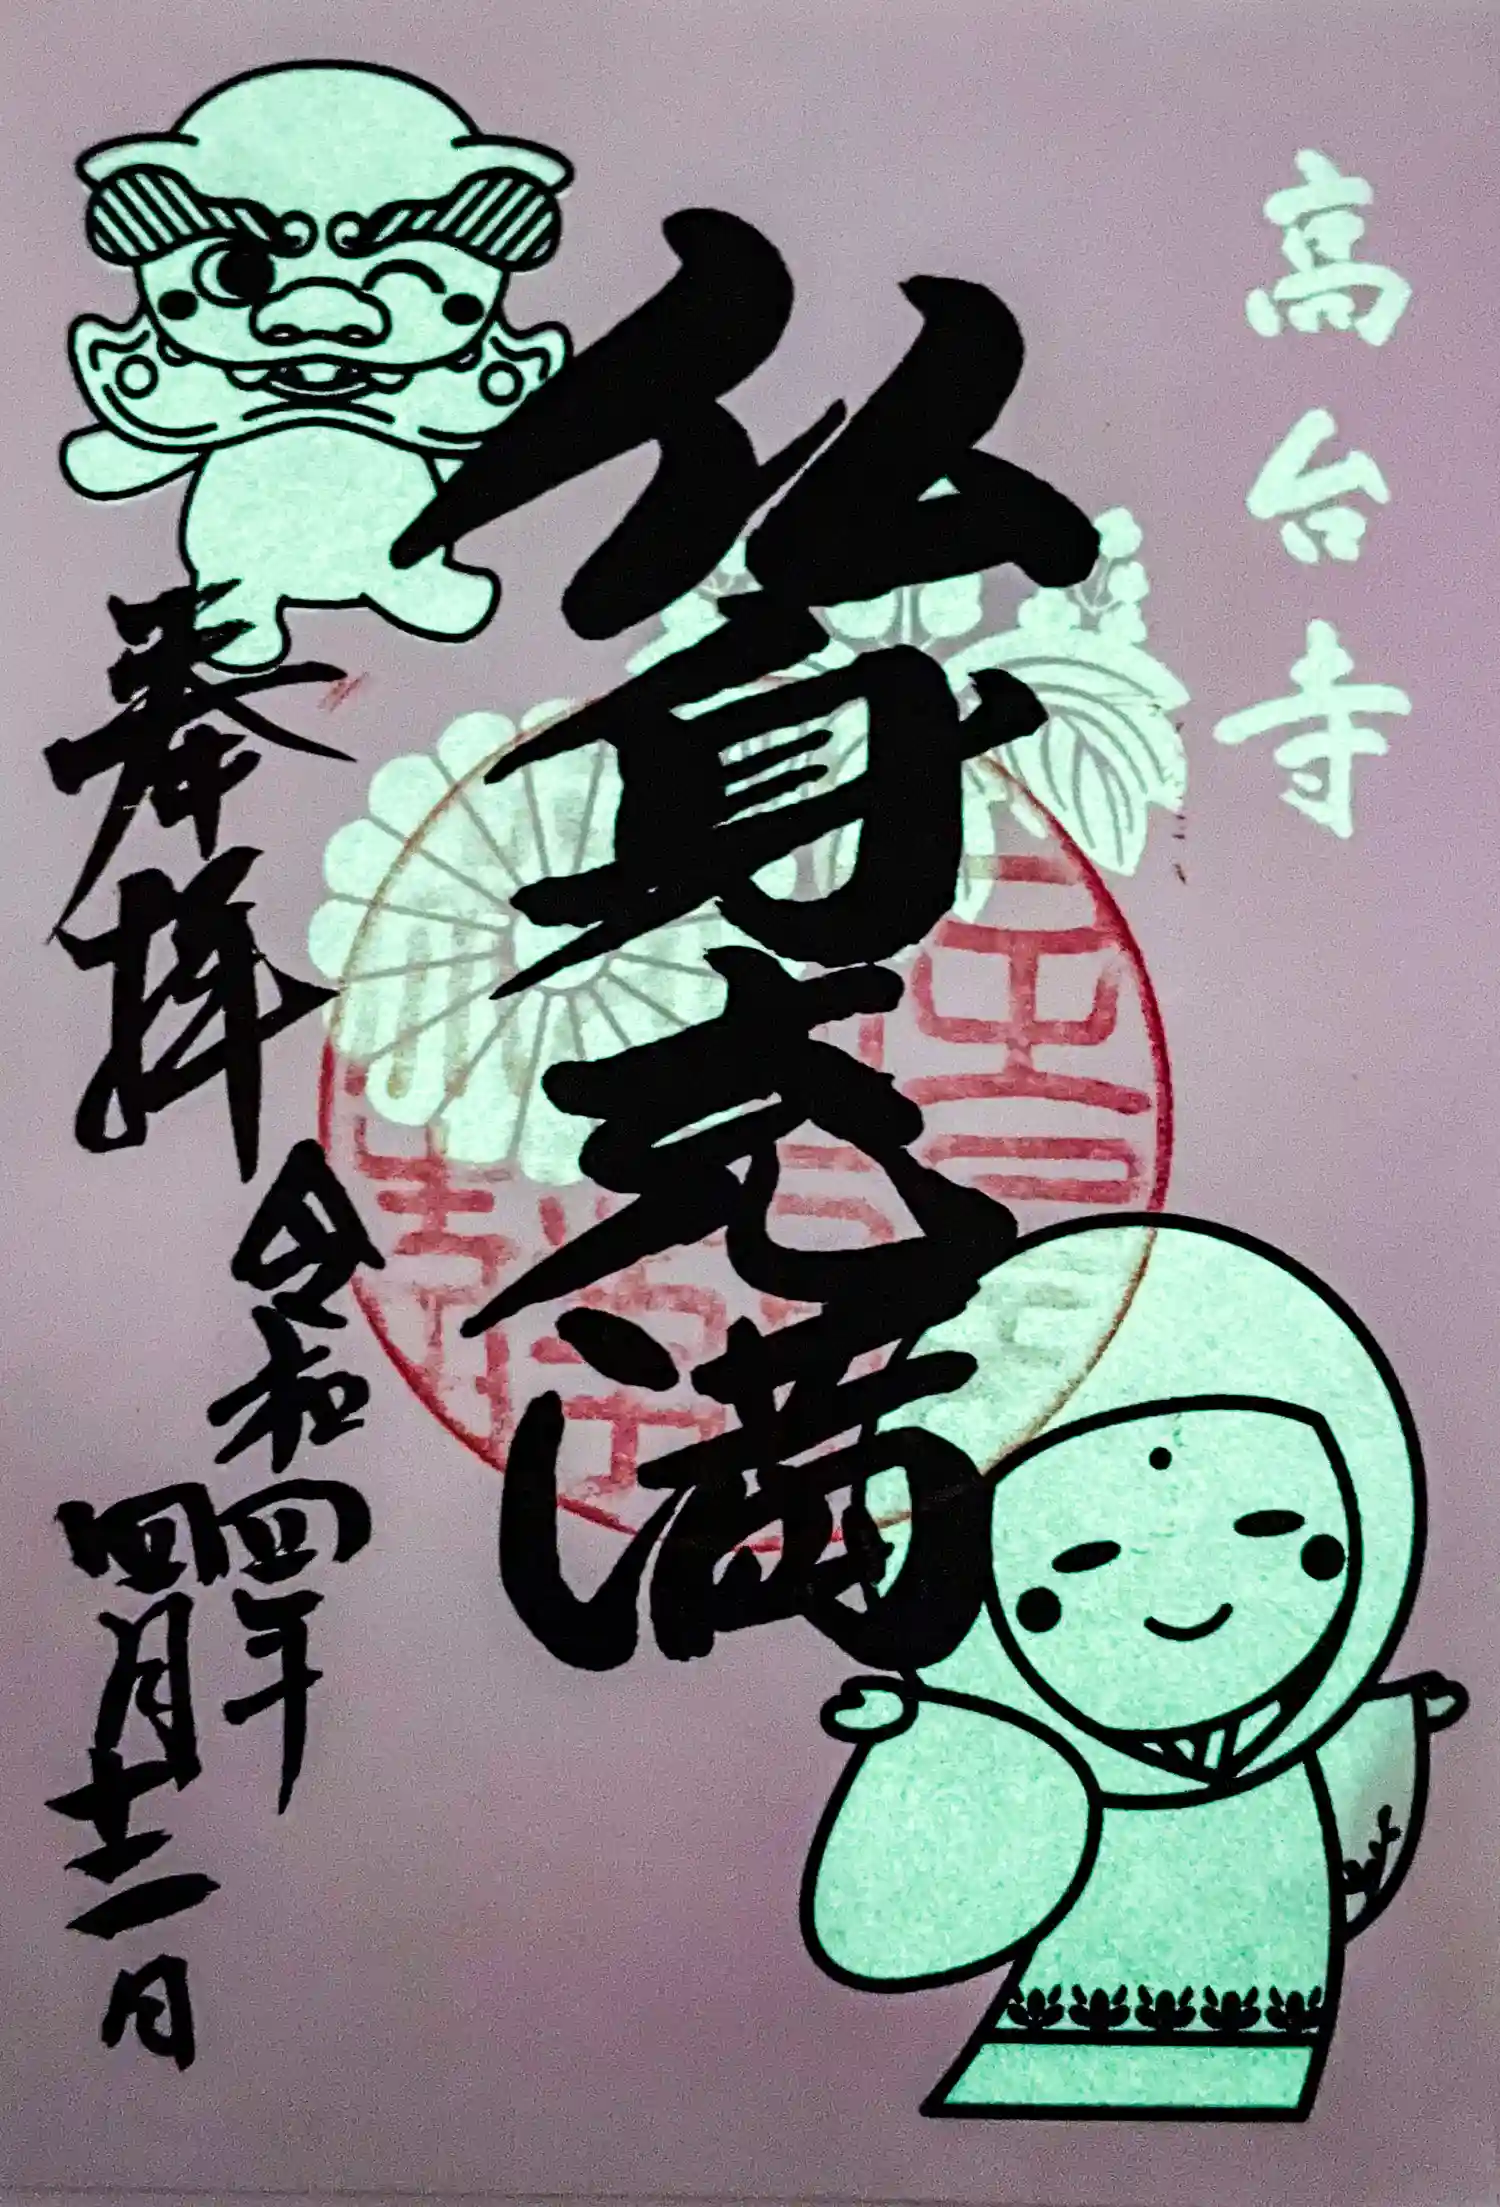 高台寺
仏身充満
奉拝
令和四年
四月十一日